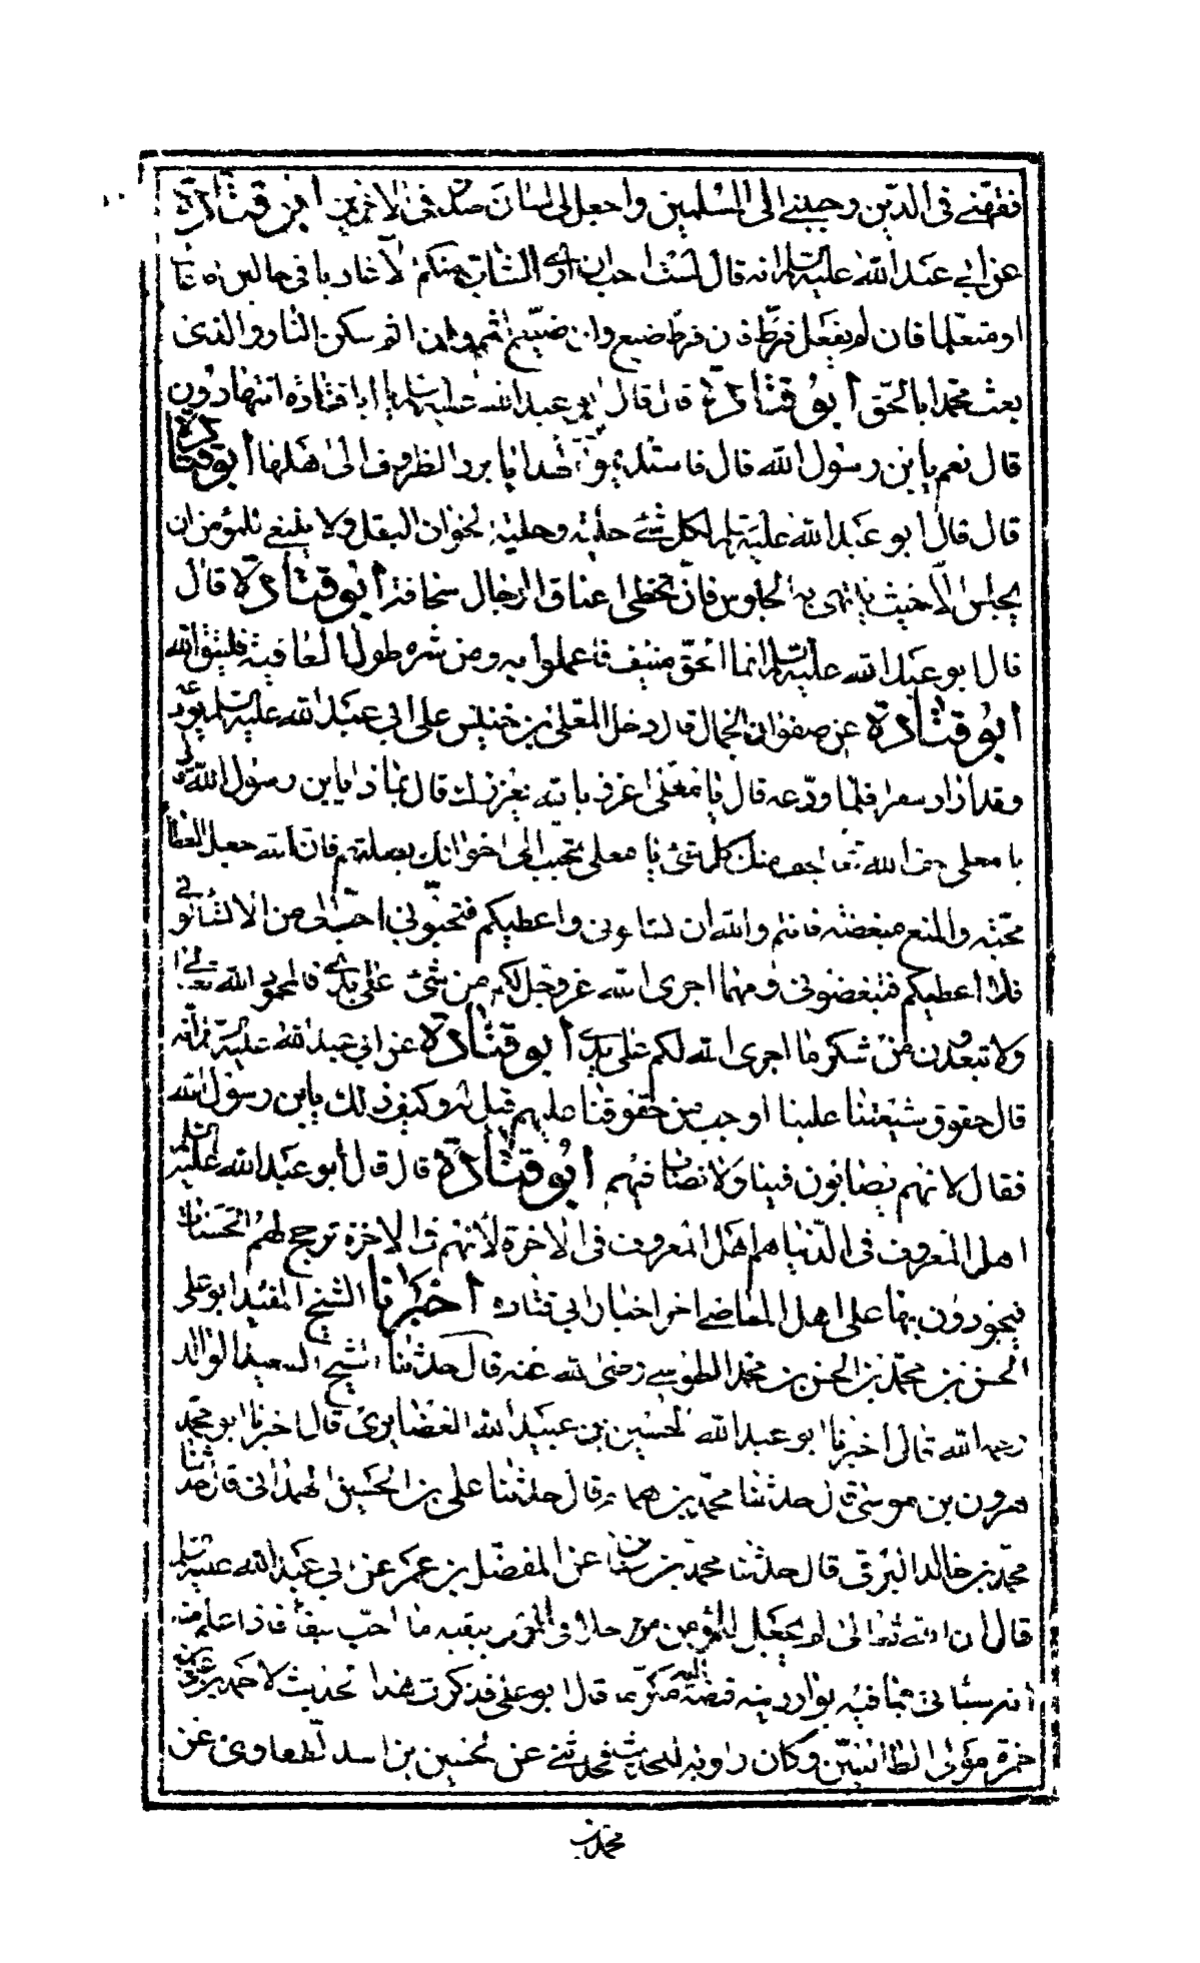 ففقهني في الدين وحببني الى المسلمين واجعل لي لسان صدق في الاخرين ابو قتادة
عن ابي عبد الله عليه السلم انه قال لست احب ان ارى الشاب منكم الا غاديا في حالين اما عالما
او متعلما فان لم يفعل فرط فان فرط ضيع وان ضيع اثم وان اثم سكن النار والذي
بعث محمدا بالحق ابو قتادة قال قال ابو عبد الله عليه السلم يا ابا قتادة اتتهادون
قال نعم يا بن رسول الله قال فاستديموا الهدايا برد الظروف الى اهلها ابو قتادة
قال قال ابو عبد الله عليه السلم لكل شئ حلية وحلية الخوان البقل ولا ينبغي للمؤمن ان
يجلس الا حيث ينتهي به الجلوس فان تخطى اعناق الرجال سخافة ابو قتادة قال
قال ابو عبد الله عليه السلم انما الحق منيف فاعملوا به ومن سره طول العافية فليتق الله
ابو قتادة عن صفوان الجمال قال دخل المعلى بن خنيس على ابي عبد الله عليه السلم يودعه
وقد اراد سفرا فلما ودعه قال يا معلى اعزز بالله يعززك قال بماذا يا بن رسول الله قال
يا معلى خف الله تعالى يخف منك كل شئ يا معلى تحبب الى اخوانك بصلتهم فان الله جعل العطا
محبة والمنع مبغضة فانتم والله ان تسئلوني واعطيكم فتحبوني احب الي من الا تسئلوني
فلا اعطيكم فتبغضوني ومهما اجرى الله عز وجل لكم من شئ على يدي فالمحمود الله تعالى
ولا تبعدون من شكر ما اجرى الله لكم على يدي ابو قتادة عن ابي عبد الله عليه السلم انه
قال حقوق شيعتنا علينا اوجب من حقوقنا عليهم قيل له وكيف ذلك يا بن رسول الله
فقال لانهم يصابون فينا ولا نصاب فيهم ابو قتادة قال قال ابو عبد الله عليه السلم
اهل المعروف في الدنيا هم اهل المعروف في الاخرة لانهم في الاخرة ترجح لهم الحسنات
فيجودون بها على اهل المعاصي اخر اخبار ابي قتادة اخبرنا الشيخ المفيد ابو علي
الحسن بن محمد بن الحسن بن محمد الطوسي رضى الله عنه قال حدثنا الشيخ السعيد الوالد
رحمه الله تعالى اخبرنا ابو عبد الله الحسين بن عبيد الله الغضايرى قال اخبرنا ابو محمد
هرون بن موسى قال حدثنا محمد بن همام قال حدثنا علي بن الحسين الهمداني قال حدثنا
محمد بن خالد البرقي قال حدثنا محمد بن سنان عن المفضل بن عمر عن ابي عبد الله عليه السلم
قال ان الله تعالى لم يجعل للمؤمن اجلا في الموت يبقيه ما احب بقائه فاذا علم منه
انه سياتي بما فيه بوار دينه قبضه اليه مكرما قال ابو علي فذكرت هذا الحديث لاحمد بن علي بن
حمزة مولى الطالبيين وكان راوية للحديث فحدثني عن الحسين بن اسد الطفاوى عن
محمد بن